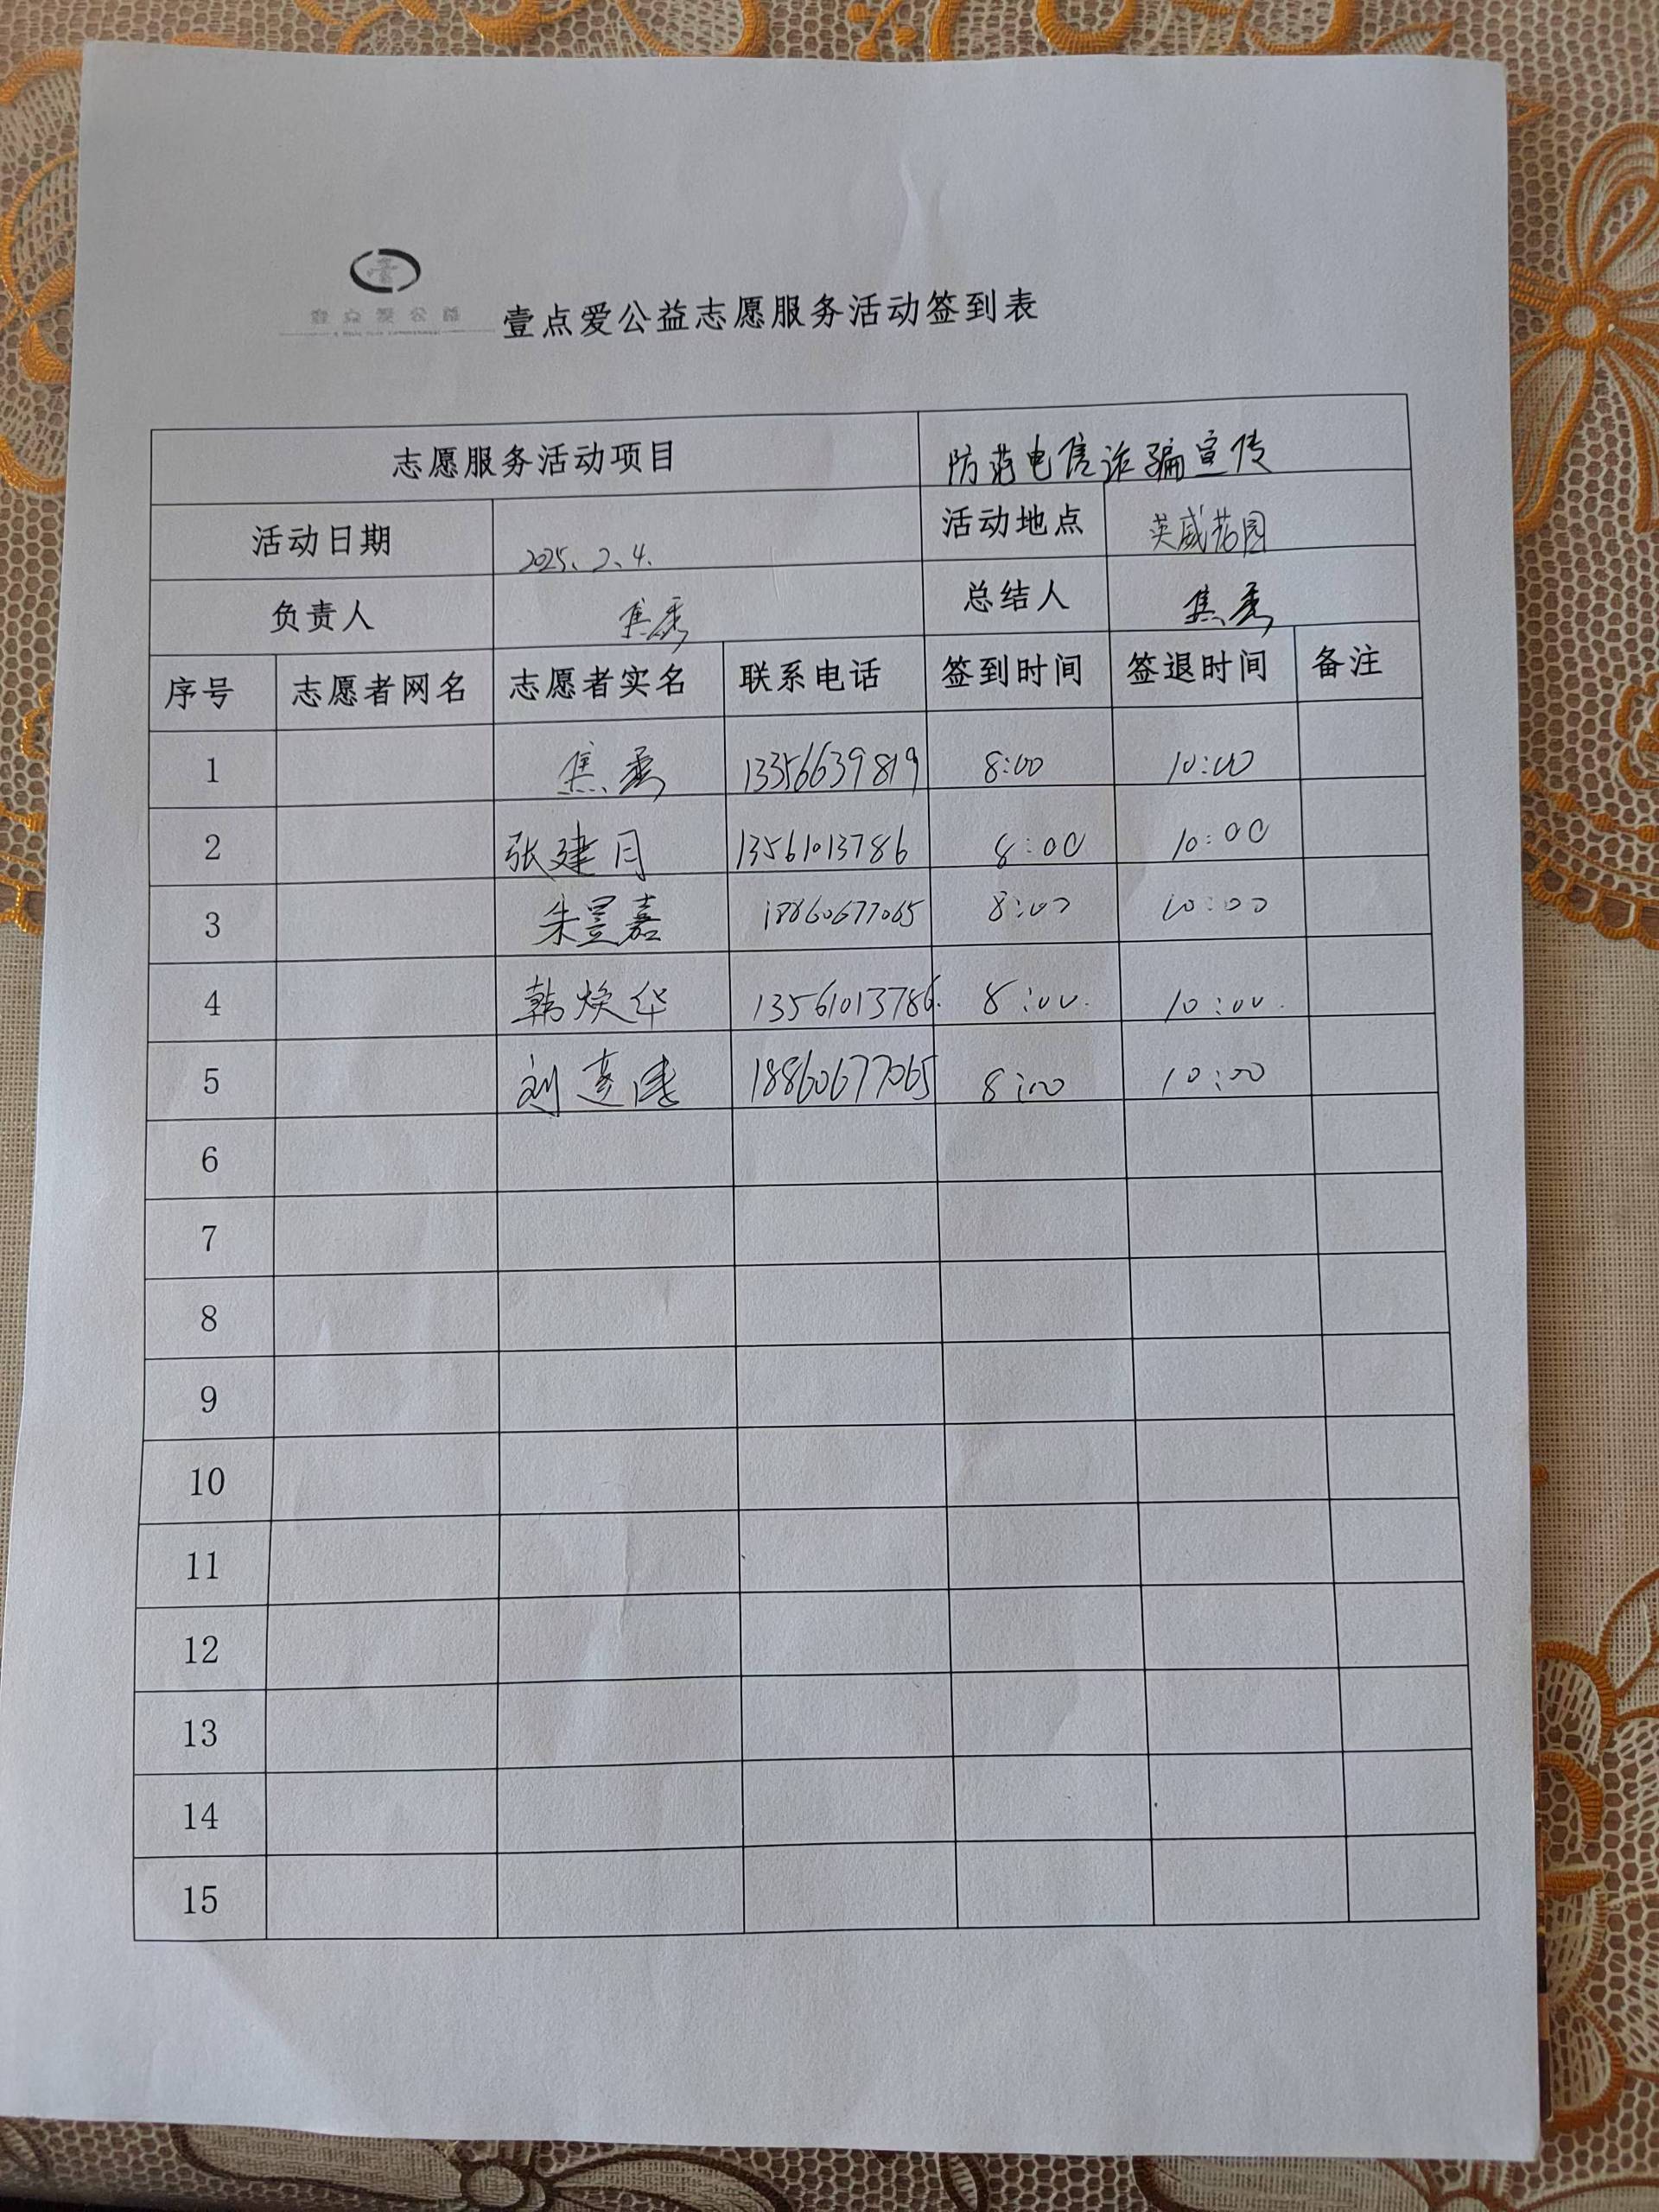 壹点爱公益
壹点爱公益志愿服务活动签到表
志愿服务活动项目 防范电信诈骗宣传
活动日期 2025.2.4. 活动地点 英威花园
负责人 焦秀 总结人 焦秀
序号 志愿者网名 志愿者实名 联系电话 签到时间 签退时间 备注
1 焦秀 13356639819 8:00 10:00
2 张建月 13561013786 8:00 10:00
3 朱昱嘉 18860677065 8:00 10:00
4 韩焕华 13561013786. 8:00. 10:00.
5 刘 18860677065 8:00 10:00
6
7
8
9
10
11
12
13
14
15